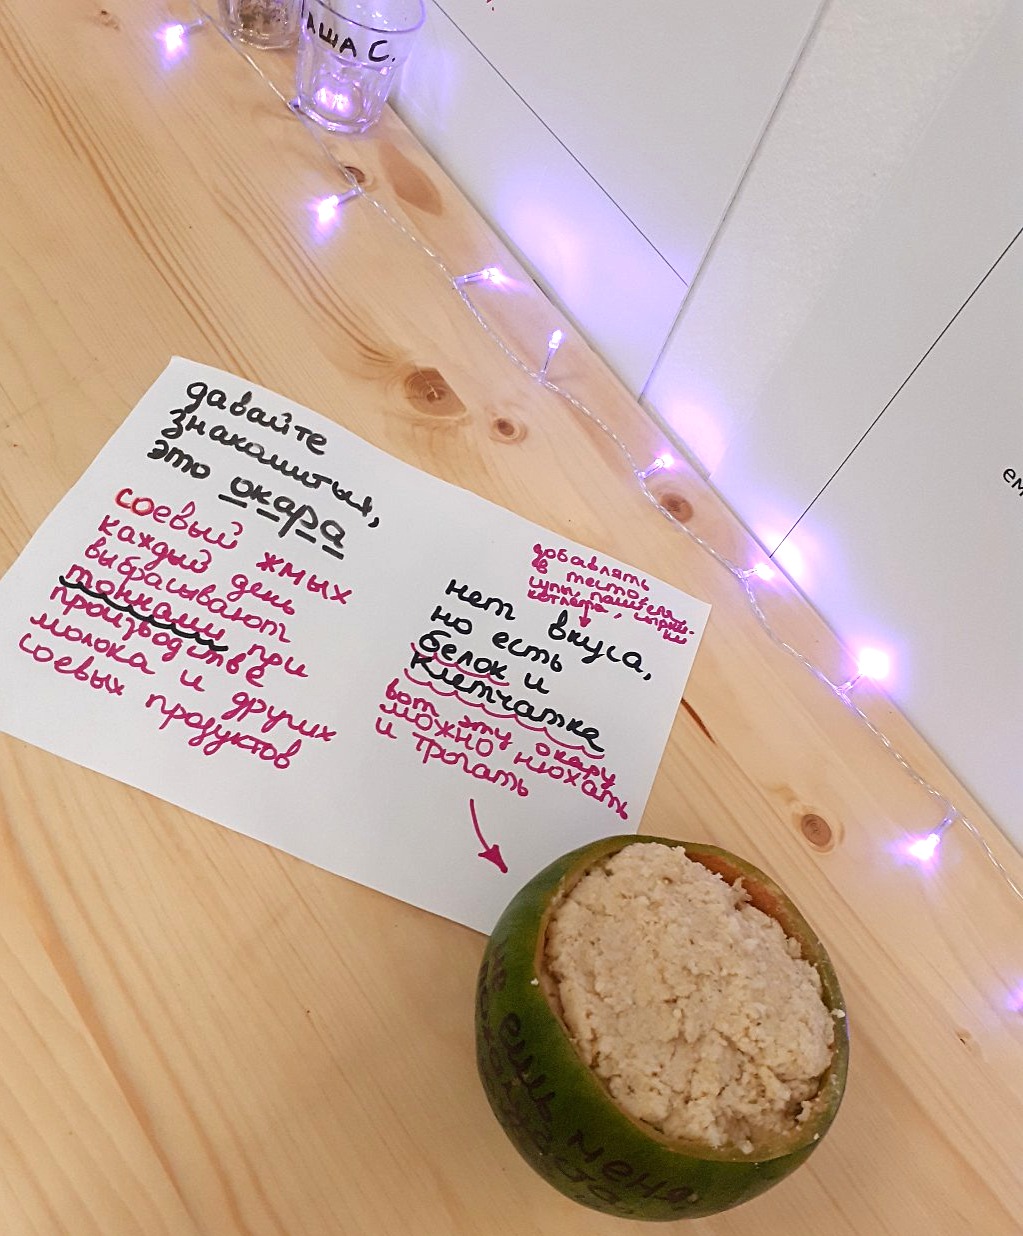 АША С.
давайте
знакомиться,
это окара
соевый жмых
каждый день
выбрасывают
тоннами при
производстве
молока и других
соевых продуктов
добавлять
в тесто,
котлеты,
нет вкуса,
но есть
белок и
клетчатка
вот эту окару
можно нюхать
и трогать
не ешь меня,
пожалуйста